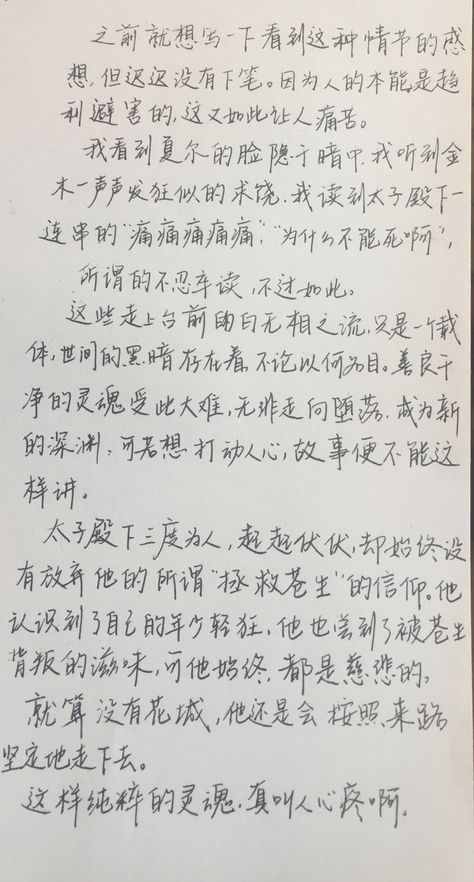 之前就想写一下看到这种情节的感
想,但迟迟没有下笔。因为人的本能是趋
利避害的,这又如此让人痛苦。
我看到夏尔的脸隐于暗中,我听到金
木一声声发狂似的求饶,我读到太子殿下一
连串的“痛痛痛痛痛”,“为什么不能死啊”,
所谓的不忍卒读,不过如此。
这些走上台前的白无相之流,只是一个载
体,世间的黑暗存在着,不论以何名目。善良干
净的灵魂受此大难,无非走向堕落,成为新
的深渊,可若想打动人心,故事便不能这
样讲。
太子殿下三度为人,起起伏伏,却始终没
有放弃他的所谓“拯救苍生”的信仰。他
认识到了自己的年少轻狂,他也尝到了被苍生
背叛的滋味,可他始终,都是慈悲的。
就算没有花城,他还是会按照来路
坚定地走下去。
这样纯粹的灵魂,真叫人心疼啊。